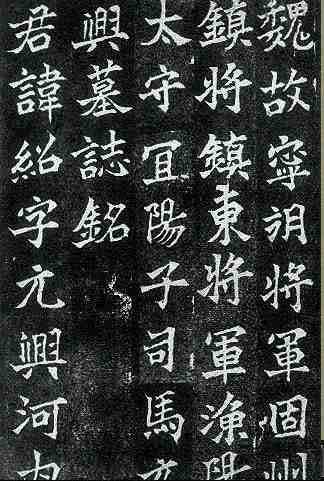 魏故寧朔將軍固州
鎮將鎮東將軍漁陽
太守冝陽子司馬元
興墓誌銘
君諱紹字元興河内